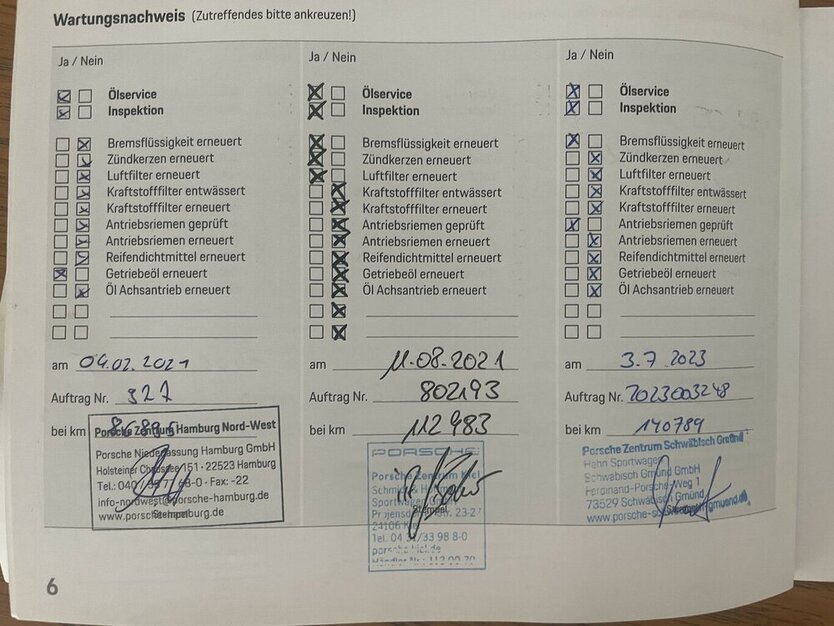 Wartungsnachweis (Zutreffendes bitte ankreuzen!)
Ja / Nein
Ölservice
Inspektion
Bremsflüssigkeit erneuert
Zündkerzen erneuert
Luftfilter erneuert
Kraftstofffilter entwässert
Kraftstofffilter erneuert
Antriebsriemen geprüft
Antriebsriemen erneuert
Reifendichtmittel erneuert
Getriebeöl erneuert
Öl Achsantrieb erneuert
am 04.02.2021
Auftrag Nr. 327
bei km
Porsche Zentrum Hamburg Nord-West
Porsche Niederlassung Hamburg GmbH
Holsteiner Chaussee 151 · 22523 Hamburg
Tel.: 040 / -0 · Fax: -22
info-nordwest@porsche-hamburg.de
www.porsche-hamburg.de
Stempel
Ja / Nein
Ölservice
Inspektion
Bremsflüssigkeit erneuert
Zündkerzen erneuert
Luftfilter erneuert
Kraftstofffilter entwässert
Kraftstofffilter erneuert
Antriebsriemen geprüft
Antriebsriemen erneuert
Reifendichtmittel erneuert
Getriebeöl erneuert
Öl Achsantrieb erneuert
am 11.08.2021
Auftrag Nr. 802193
bei km 112 983
PORSCHE
Porsche Zentrum Kiel
Sportwagen
24106 Kiel
Tel. 04 31/33 98 8-0
porsche-kiel.de
Stempel
Ja / Nein
Ölservice
Inspektion
Bremsflüssigkeit erneuert
Zündkerzen erneuert
Luftfilter erneuert
Kraftstofffilter entwässert
Kraftstofffilter erneuert
Antriebsriemen geprüft
Antriebsriemen erneuert
Reifendichtmittel erneuert
Getriebeöl erneuert
Öl Achsantrieb erneuert
am 3.7.2023
Auftrag Nr. 2023003248
bei km 140789
Porsche Zentrum Schwäbisch Gmünd
Hahn Sportwagen
Schwäbisch Gmünd GmbH
Ferdinand-Porsche-Weg 1
73529 Schwäbisch Gmünd
6